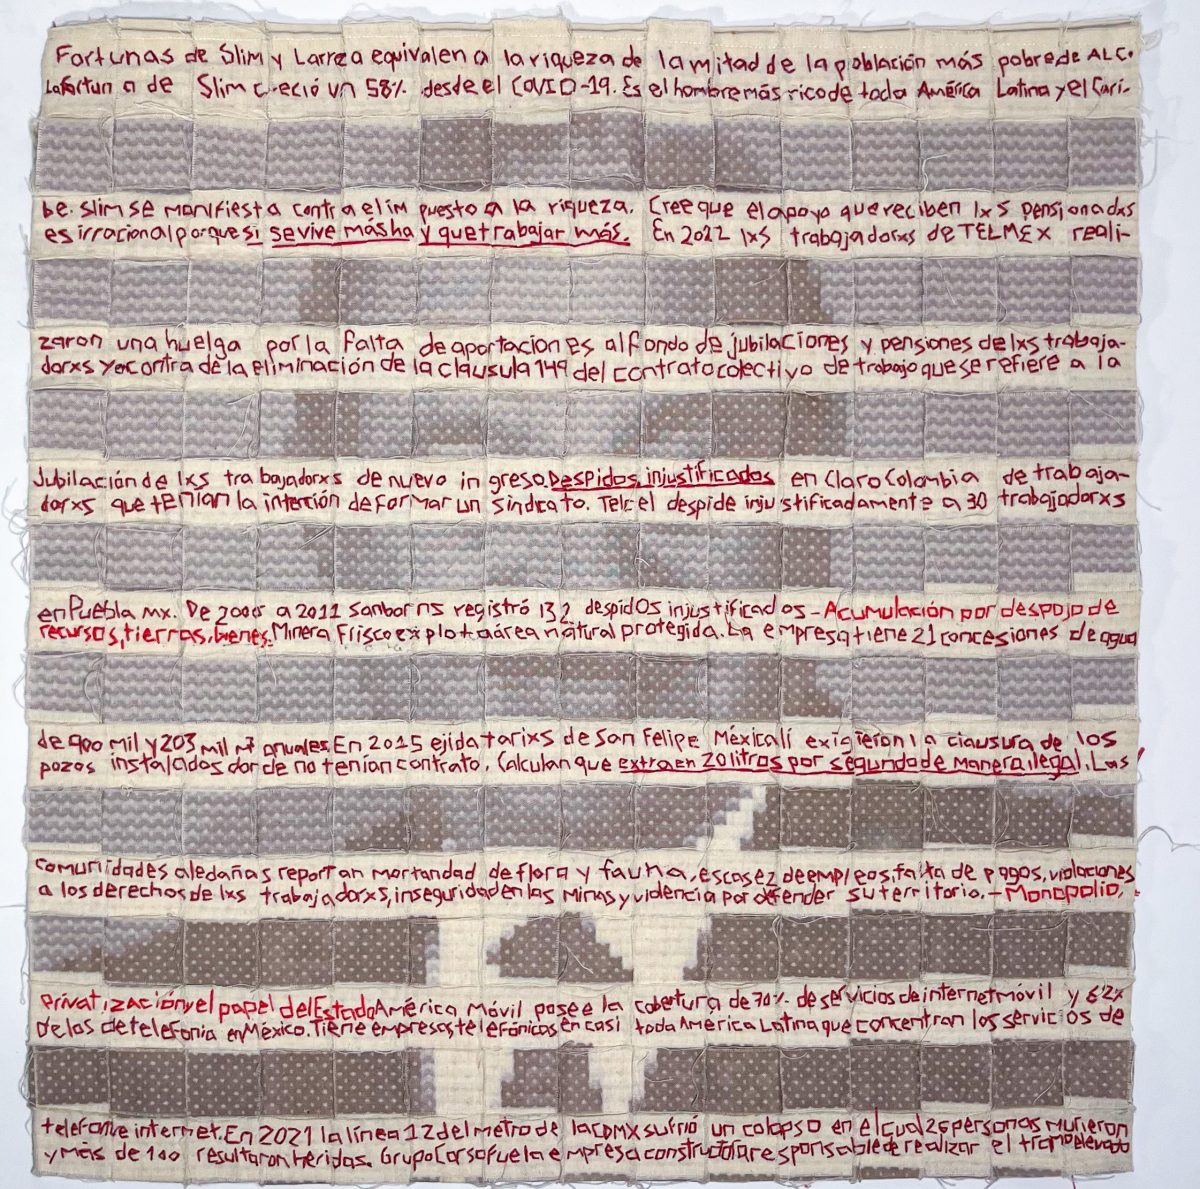 Fortunas de Slim y Larrea equivalen a la riqueza de la mitad de la población más pobre de ALC.
La fortuna de Slim creció un 58% desde el COVID-19. Es el hombre más rico de toda América Latina y el Cari-
be. Slim se manifiesta contra el impuesto a la riqueza. Cree que el apoyo que reciben lxs pensionadxs
es irracional porque si se vive más hay que trabajar más. En 2022 lxs trabajadorxs de TELMEX reali-
zaron una huelga por la falta de aportaciones al fondo de jubilaciones y pensiones de lxs trabaja-
dorxs y en contra de la eliminación de la clausula 149 del contrato colectivo de trabajo que se refiere a la
Jubilación de lxs trabajadorxs de nuevo ingreso. Despidos injustificados en Claro Colombia de trabaja-
dorxs que tenían la intención de formar un sindicato. Telcel despide injustificadamente a 30 trabajadorxs
en Puebla Mx. De a 2011 Sanborns registró 132 despidos injustificados - Acumulación por despojo de
recursos, tierras, bienes. Minera Frisco explota área natural protegida. La empresa tiene 21 concesiones de agua
de 900 mil y 203 mil m³ anuales. En 2015 ejidatarixs de San Felipe Méxicalí exigieron la clausura de los
pozos instalados donde no tenían contrato. Calculan que extraen 20 litros por segundo de manera ilegal. Las
comunidades aledañas reportan mortandad de flora y fauna, escasez de empleos, falta de pagos, violaciones
a los derechos de lxs trabajadorxs, inseguridad en las minas y violencia por defender su territorio. - Monopolio,
privatización y el papel del Estado América Móvil posee la cobertura de 70% de servicios de internet móvil y 62%
de los de telefonía en México. Tiene empresas telefónicas en casi toda América Latina que concentran los servicios de
telefonía e internet. En 2021 la línea 12 del metro de la CDMX sufrió un colapso en el cual 26 personas murieron
y más de 100 resultaron heridas. Grupo Carso fue la empresa constructora responsable de realizar el tramo elevado